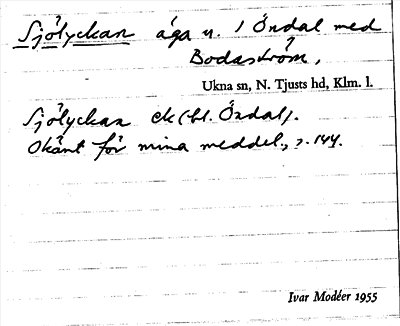 Sjölyckan äga u. / Öndal med
Bodaström,
Ukna sn, N. Tjusts hd, Klm. l.
Sjölyckan ek (bl. Öndal).
Okänt för mina meddel., s. 144.
Ivar Modéer 1955